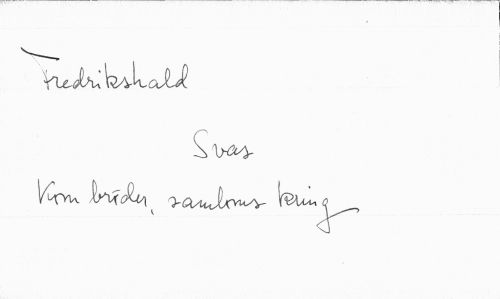 Fredrikshald
Svas
Kom bröder, samloms kring